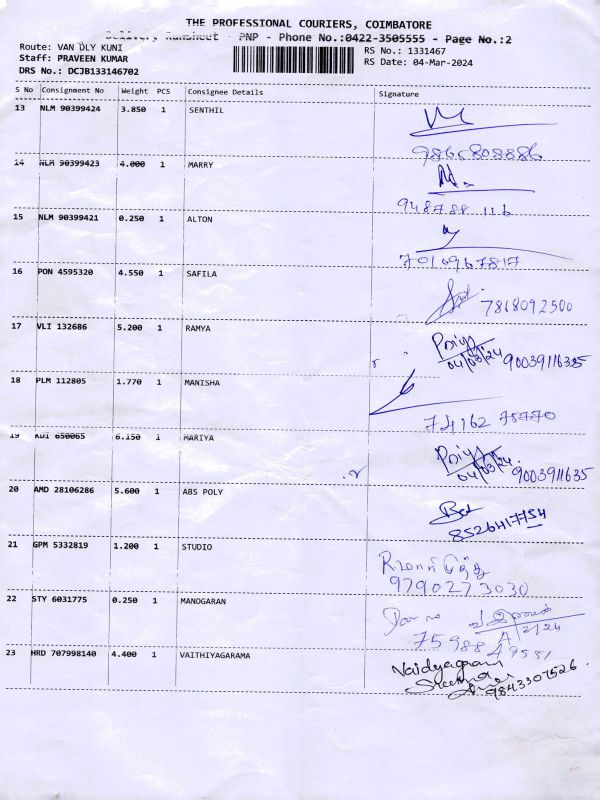 THE PROFESSIONAL COURIERS, COIMBATORE
Delivery Runsheet - PNP - Phone No.:0422-3505555 - Page No.:2
Route: VAN DLY KUNI
RS No.: 1331467
Staff: PRAVEEN KUMAR
RS Date: 04-Mar-2024
DRS No.: DCJB133146702
S No Consignment No Weight PCS Consignee Details Signature
13 NLM 90399424 3.850 1 SENTHIL
9866808886
14 NLM 90399423 4.000 1 MARRY
948788 116
15 NLM 90399421 0.250 1 ALTON
7010967817
16 PON 4595320 4.550 1 SAFILA
7868092500
17 VLI 132686 5.200 1 RAMYA
Priya
04/03/24 9003911635
18 PLM 112805 1.770 1 MANISHA
74162 75770
19 KDI 650065 6.150 1 MARIYA
Priya
04/03/24 9003911635
20 AMD 28106286 5.600 1 ABS POLY
8526417754
21 GPM 5332819 1.200 1 STUDIO
9790273030
22 STY 6031775 0.250 1 MANOGARAN
75988 49551
23 HRD 707998140 4.400 1 VAITHIYAGARAMA
Vaidyagram
9843307526